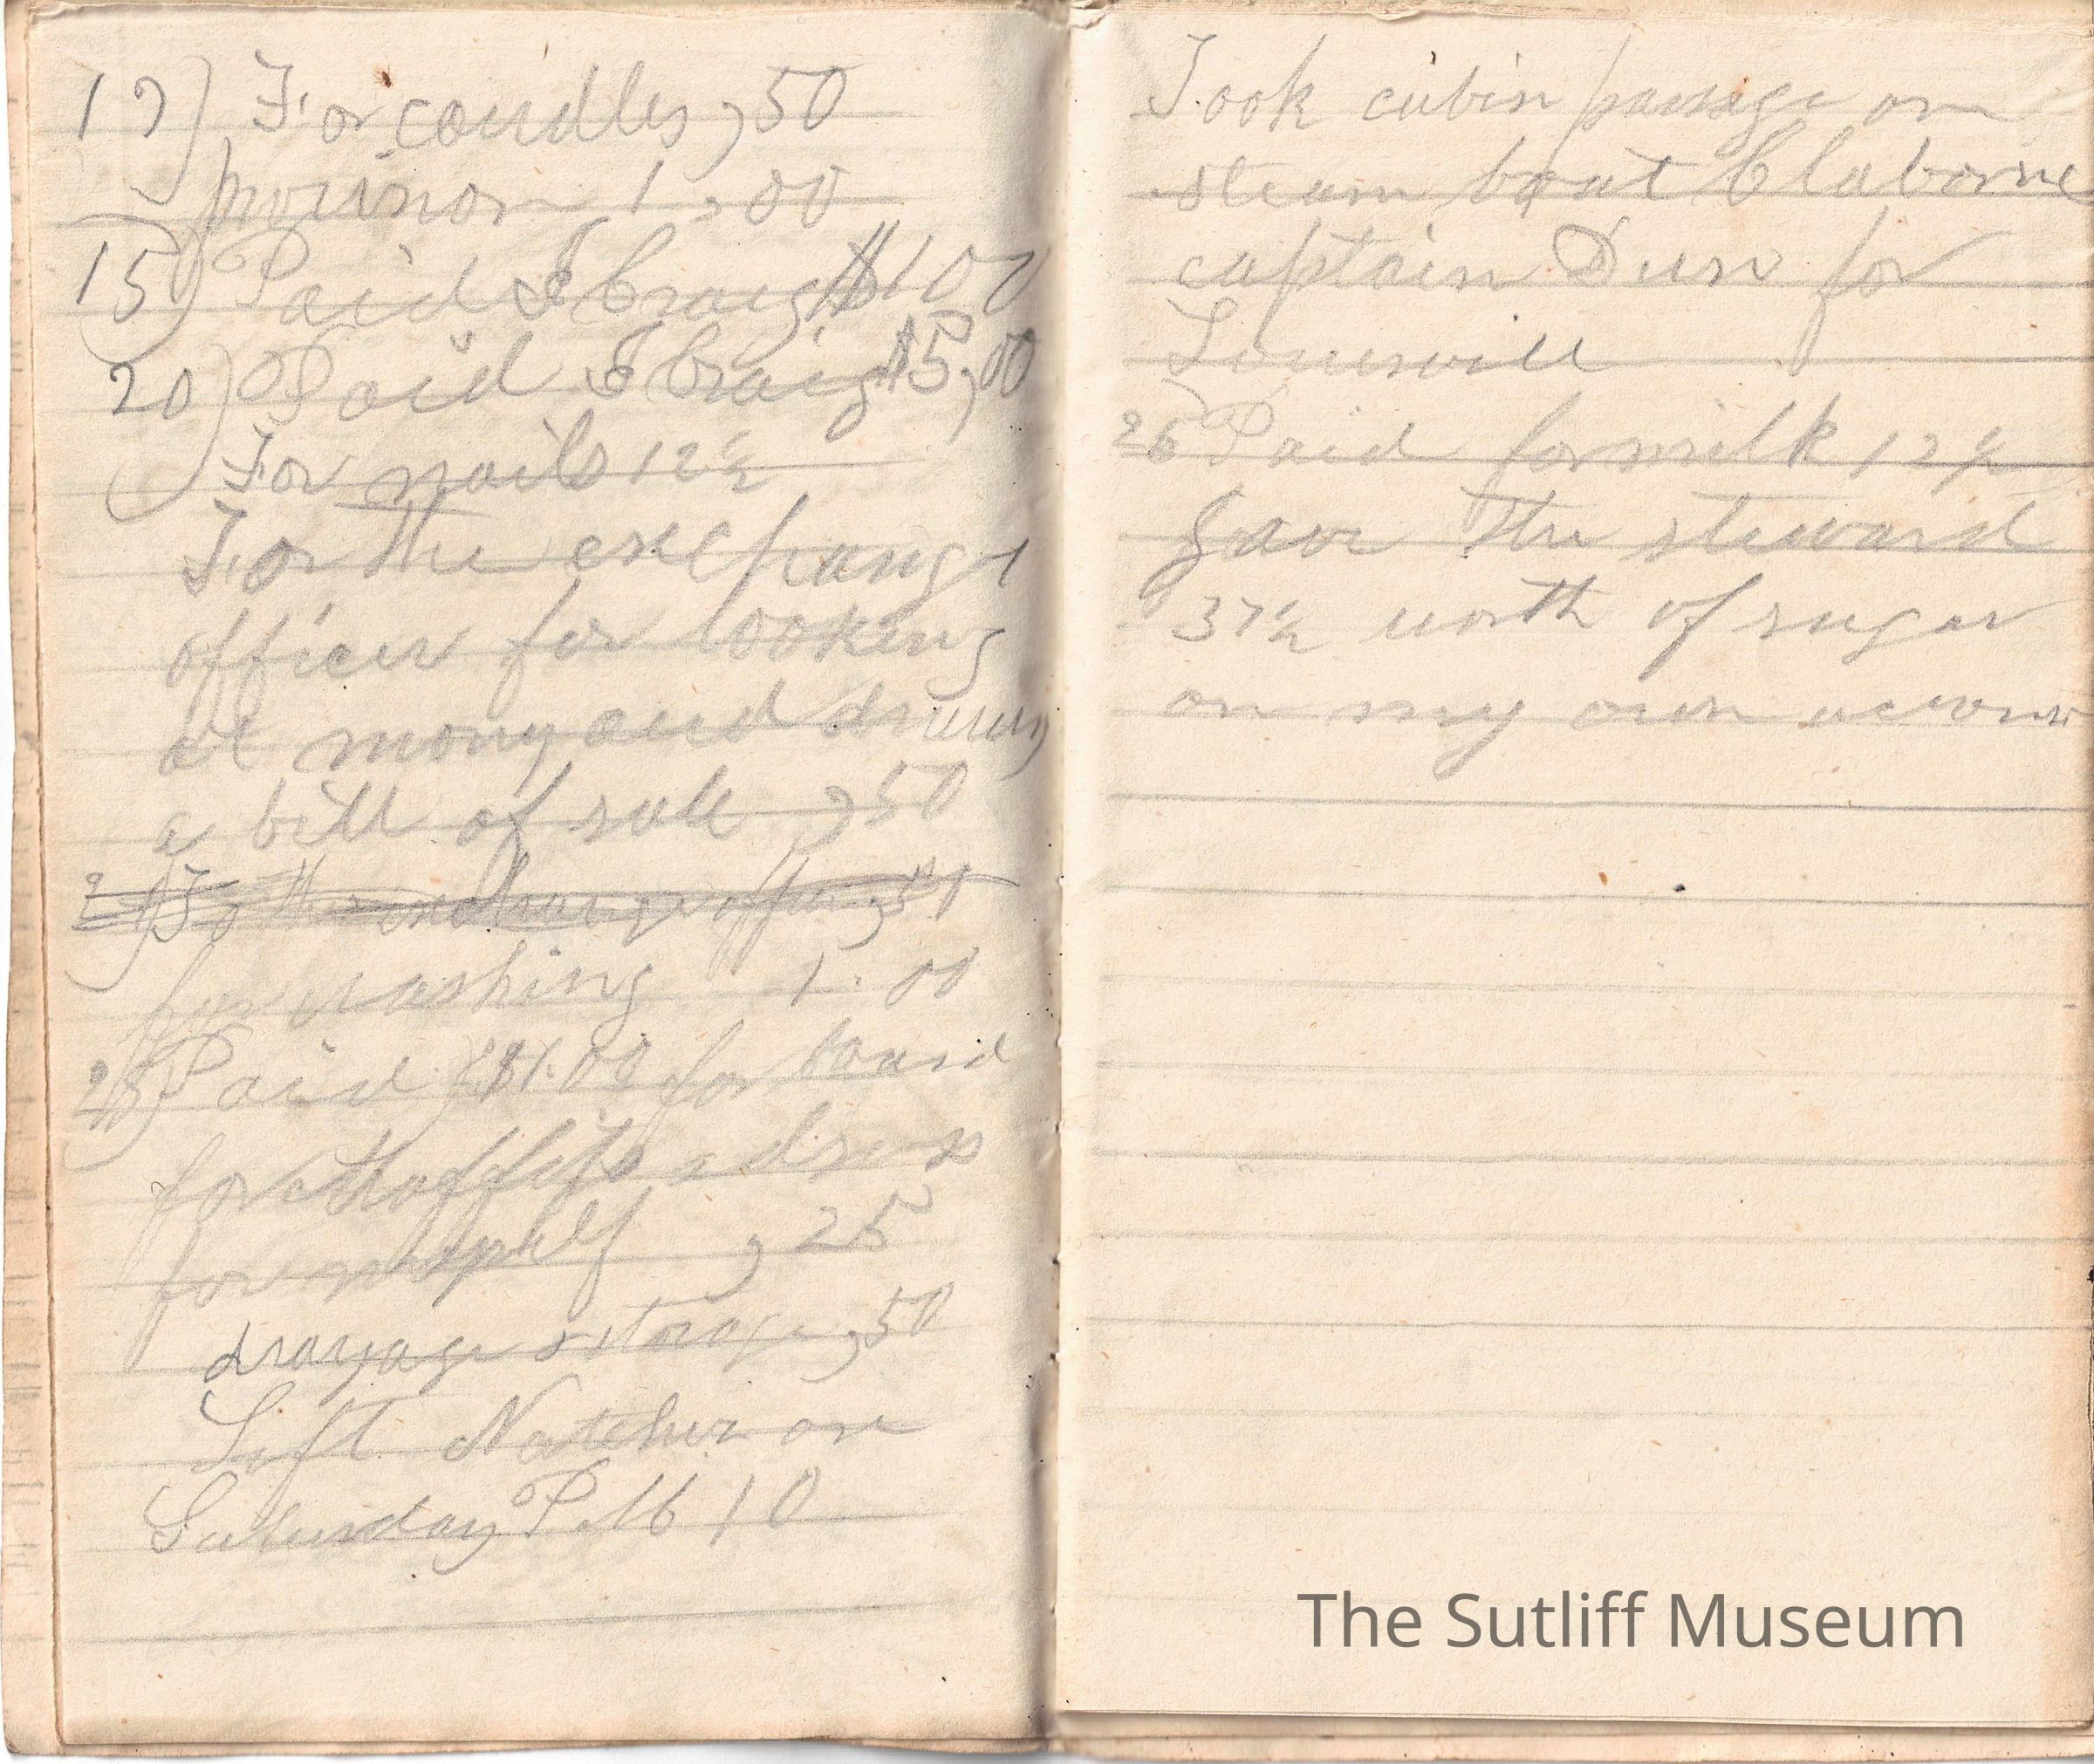 17) For candles ,50
1,00
15) Paid J Craig $100
20) Paid J Craig $5,00
For nails 12½
For the exchang
officer for looking
at mony and drawing
a bill of sale ,50
2 To the exchange officer ,50
for washing 1.00
25) Paid $1.00 for board
for
for myself ,25
drayage & storage ,50
Left Natchez on
Saturday P.M 10
Took cabin passage on
steam boat Claborne
captain Dunn for
Louisvill
26 Paid for milk 12½
gave the steward
37½ worth of sugar
on my own account
The Sutliff Museum